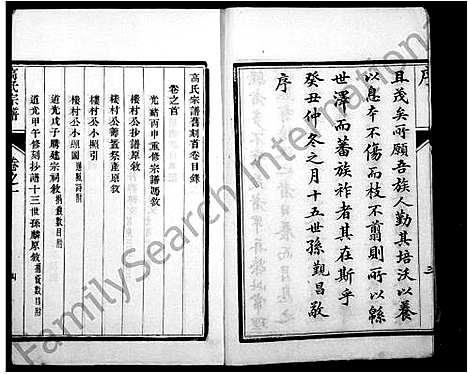 序
且茂矣所願吾族人勤其培沃以養
以息本不傷而枝不翦則所以緜
世澤而蕃族祚者其在斯乎
癸丑仲冬之月十五世孫觀昌敬
序
三
高氏宗譜舊刻首卷目錄
卷之首
光緒丙申重修宗譜馮敘
樓村公抄譜原敘
樓村公籌置祭產原敘
樓村公小照引
樓村公小照圖
道光戊子購建宗祠敘
道光甲午修刻抄譜十三世孫麟原敘
高氏宗譜
卷之一
四
FamilySearch International